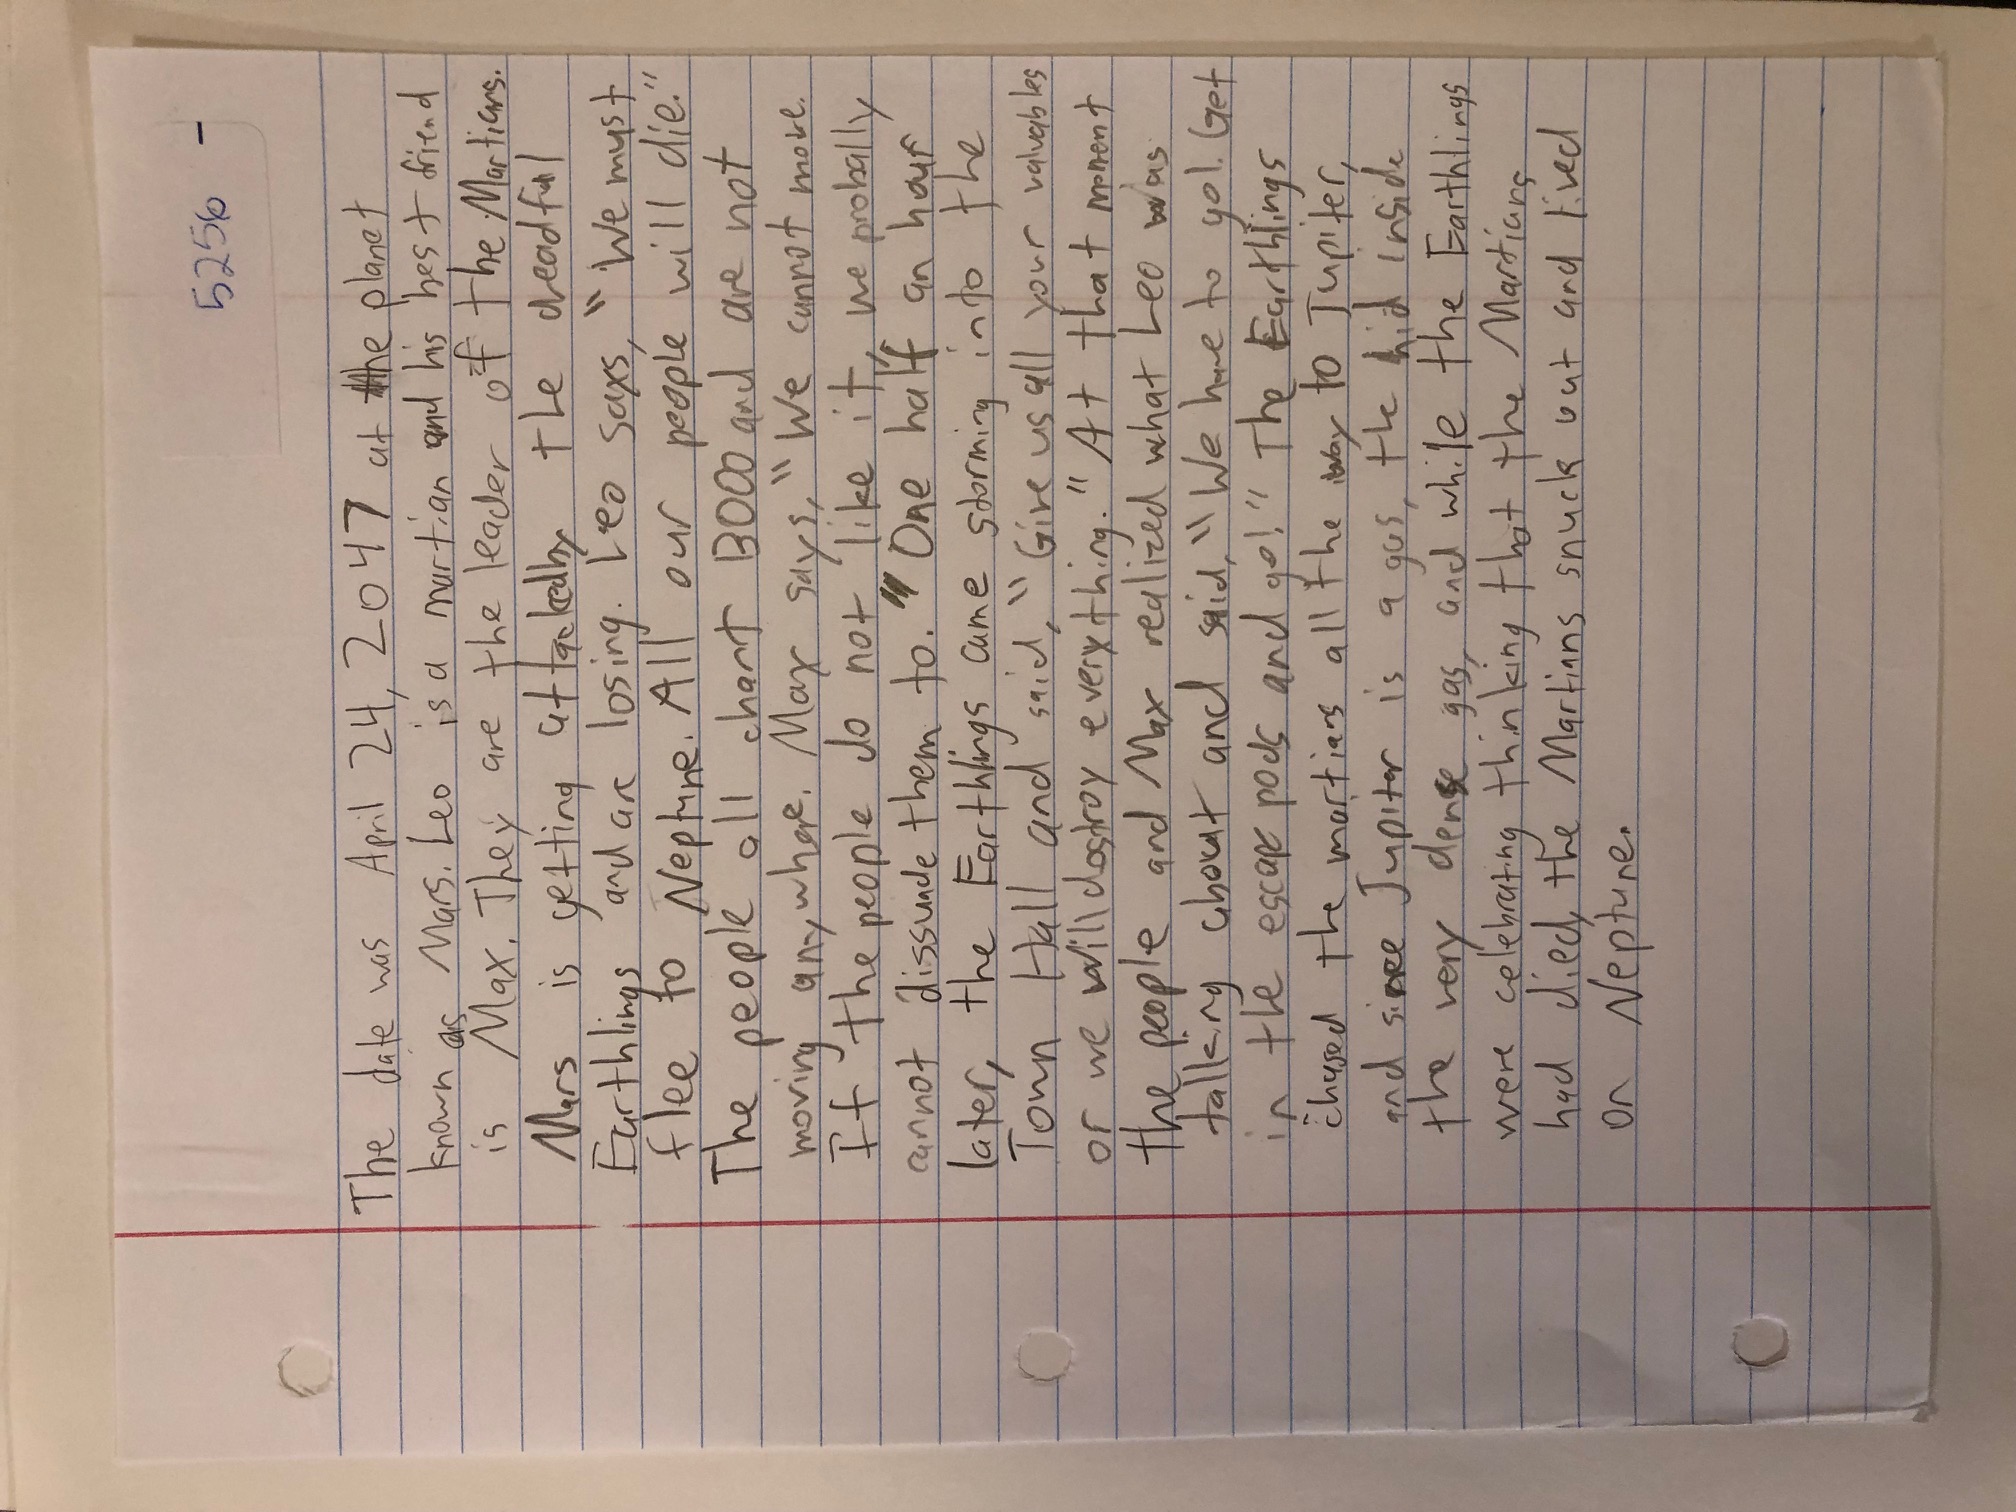 5256 -
The date was April 24, 2047 at the planet
known as Mars. Leo is a martian and his best friend
is Max. They are the leader of the Martians.
Mars is getting attackedby the dreadful
Earthlings and are losing. Leo says, "We must
flee to Neptune. All our people will die."
The people all chant BOOO and are not
moving anywhere. Max says, "We cannot move.
If the people do not like it, we probally
cannot dissuade them to." One half an hour
later, the Earthlings came storming into the
Town Hall and said, "Give us all your valuables
or we will destroy everything." At that moment
the people and Max realized what Leo was
talking about and said, "We have to go!. Get
in the escape pods and go!" The Earthlings
chased the martians all the way to Jupiter,
and since Jupiter is a gas, the hid inside
the very dense gas, and while the Earthlings
were celebrating thinking that the Martians
had died, the Martians snuck out and lived
on Neptune.